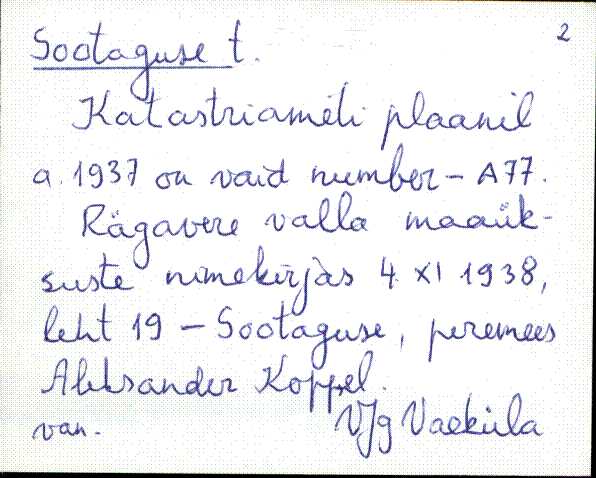 2
Sootaguse t.
Katastriameti plaanil
a. 1937 on vaid number - A77.
Rägavere valla maaük-
suste nimekirjas 4. XI 1938,
leht 19 - Sootaguse, peremees
Aleksander Koppel.
van. VJg Vaeküla